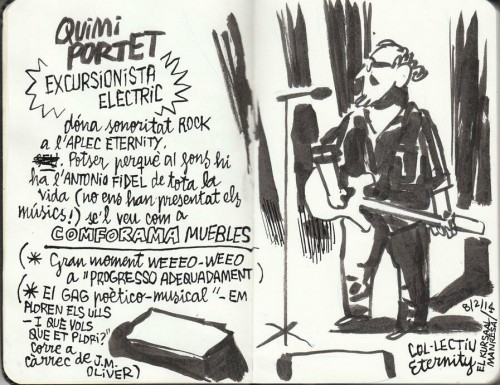 QUIMI
PORTET
EXCURSIONISTA
ELÈCTRIC
dóna sonoritat ROCK
a l'APLEC ETERNITY.
Potser perquè al fons hi
ha l'ANTONIO FIDEL de tota la
vida (no ens han presentat els
músics!) se'l veu com a
COMFORAMA MUEBLES
(* Gran moment WEEEO-WEEO
a "PROGRESSO ADEQUADAMENT)
(* El GAG poètico-musical "-EM
PLOREN ELS ULLS
-I QUÈ VOLS
QUE ET PLORI?"
corre a
càrrec de J.M.
OLIVER)
8/2/14
EL KURSAAL
MANRESA
COL·LECTIU
Eternity.